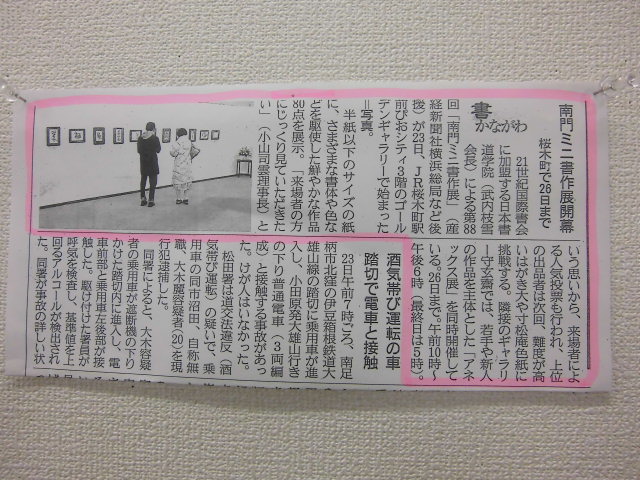 南門ミニ書作展開幕
桜木町で26日まで
書
かながわ
21世紀国際書会
に加盟する日本書
道学院（武内枝雪
会長）による第88
回「南門ミニ書作展」（産
経新聞社横浜総局など後
援）が23日、ＪＲ桜木町駅
前ぴおシティ3階のゴール
デンギャラリーで始まった
＝写真。
半紙以下のサイズの紙
に、さまざまな書体や色な
どを駆使した鮮やかな作品
80点を展示。「来場者の方
にじっくり見ていただきた
い」（小山司雲理事長）と
いう思いから、来場者によ
る人気投票も行われ、上位
の出品者は次回、難度が高
いはがき大や寸松庵色紙に
挑戦する。隣接のギャラリ
ー守玄齋では、若手や新人
の作品を主体とした「アネ
ックス展」を同時開催して
いる。26日まで。午前10時～
午後6時（最終日は5時）。
酒気帯び運転の車
踏切で電車と接触
23日午前7時ごろ、南足
柄市北窪の伊豆箱根鉄道大
雄山線の踏切に乗用車が進
入し、小田原発大雄山行き
の下り普通電車（3両編
成）と接触する事故があっ
た。けが人はいなかった。
松田署は道交法違反（酒
気帯び運転）の疑いで、乗
用車の同市沼田、自称無
職、大木魔容疑者（20）を現
行犯逮捕した。
同署によると、大木容疑
者の乗用車が遮断機の下り
かけた踏切内に進入し、電
車前部と乗用車左後部が接
触した。駆け付けた署員が
呼気を検査し、基準値を上
回るアルコールが検出され
た。同署が事故の詳しい状